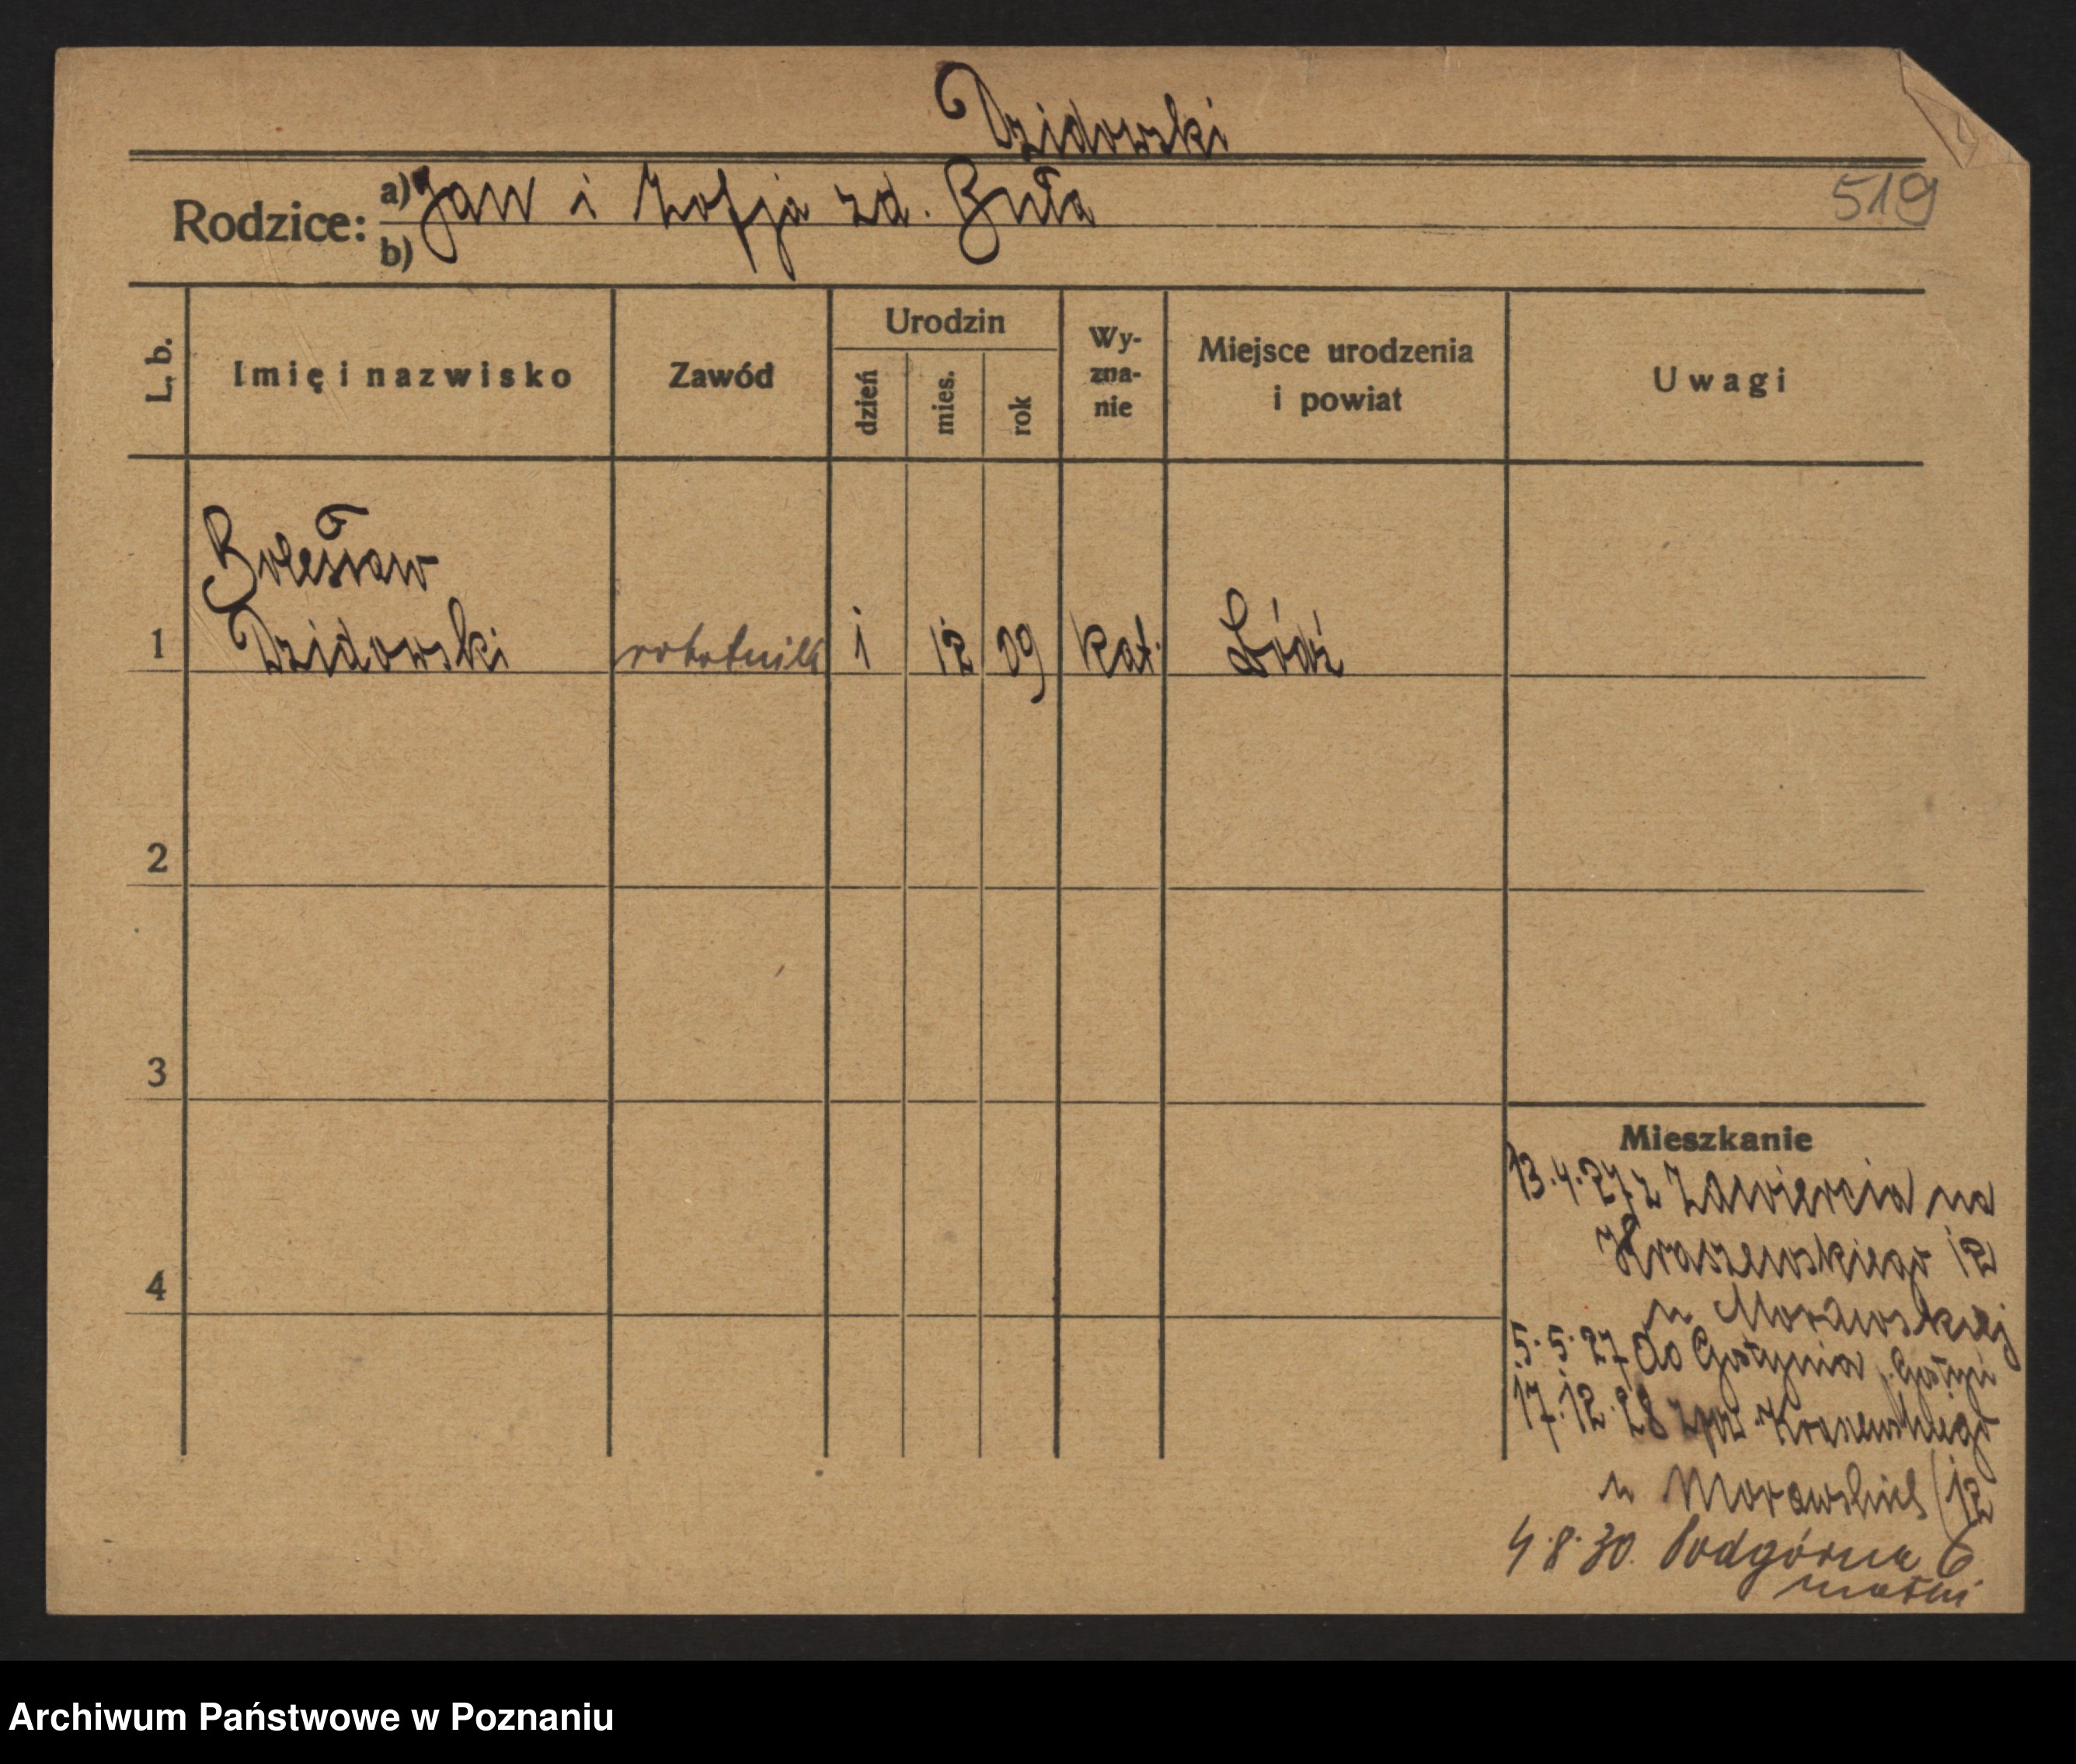 Dzidowski
519
Rodzice: a) Jan i Zofja zd. Buła
b)
L. b.
Imię i nazwisko
Zawód
Urodzin
dzień
mies.
rok
Wy-
zna-
nie
Miejsce urodzenia
i powiat
Uwagi
Bolesław
1 Dzidowski robotnik 1 12 09 kat. Łódź
2
3
4
Mieszkanie
13.4.27 z Zawiercia na
Kraszewskiego 12
u Morawskiej
5.5.27 do Gostynia
17.12.28 Kraszewskiego
u Morawskiej 12
4.8.30. Podgórna 6
Archiwum Państwowe w Poznaniu